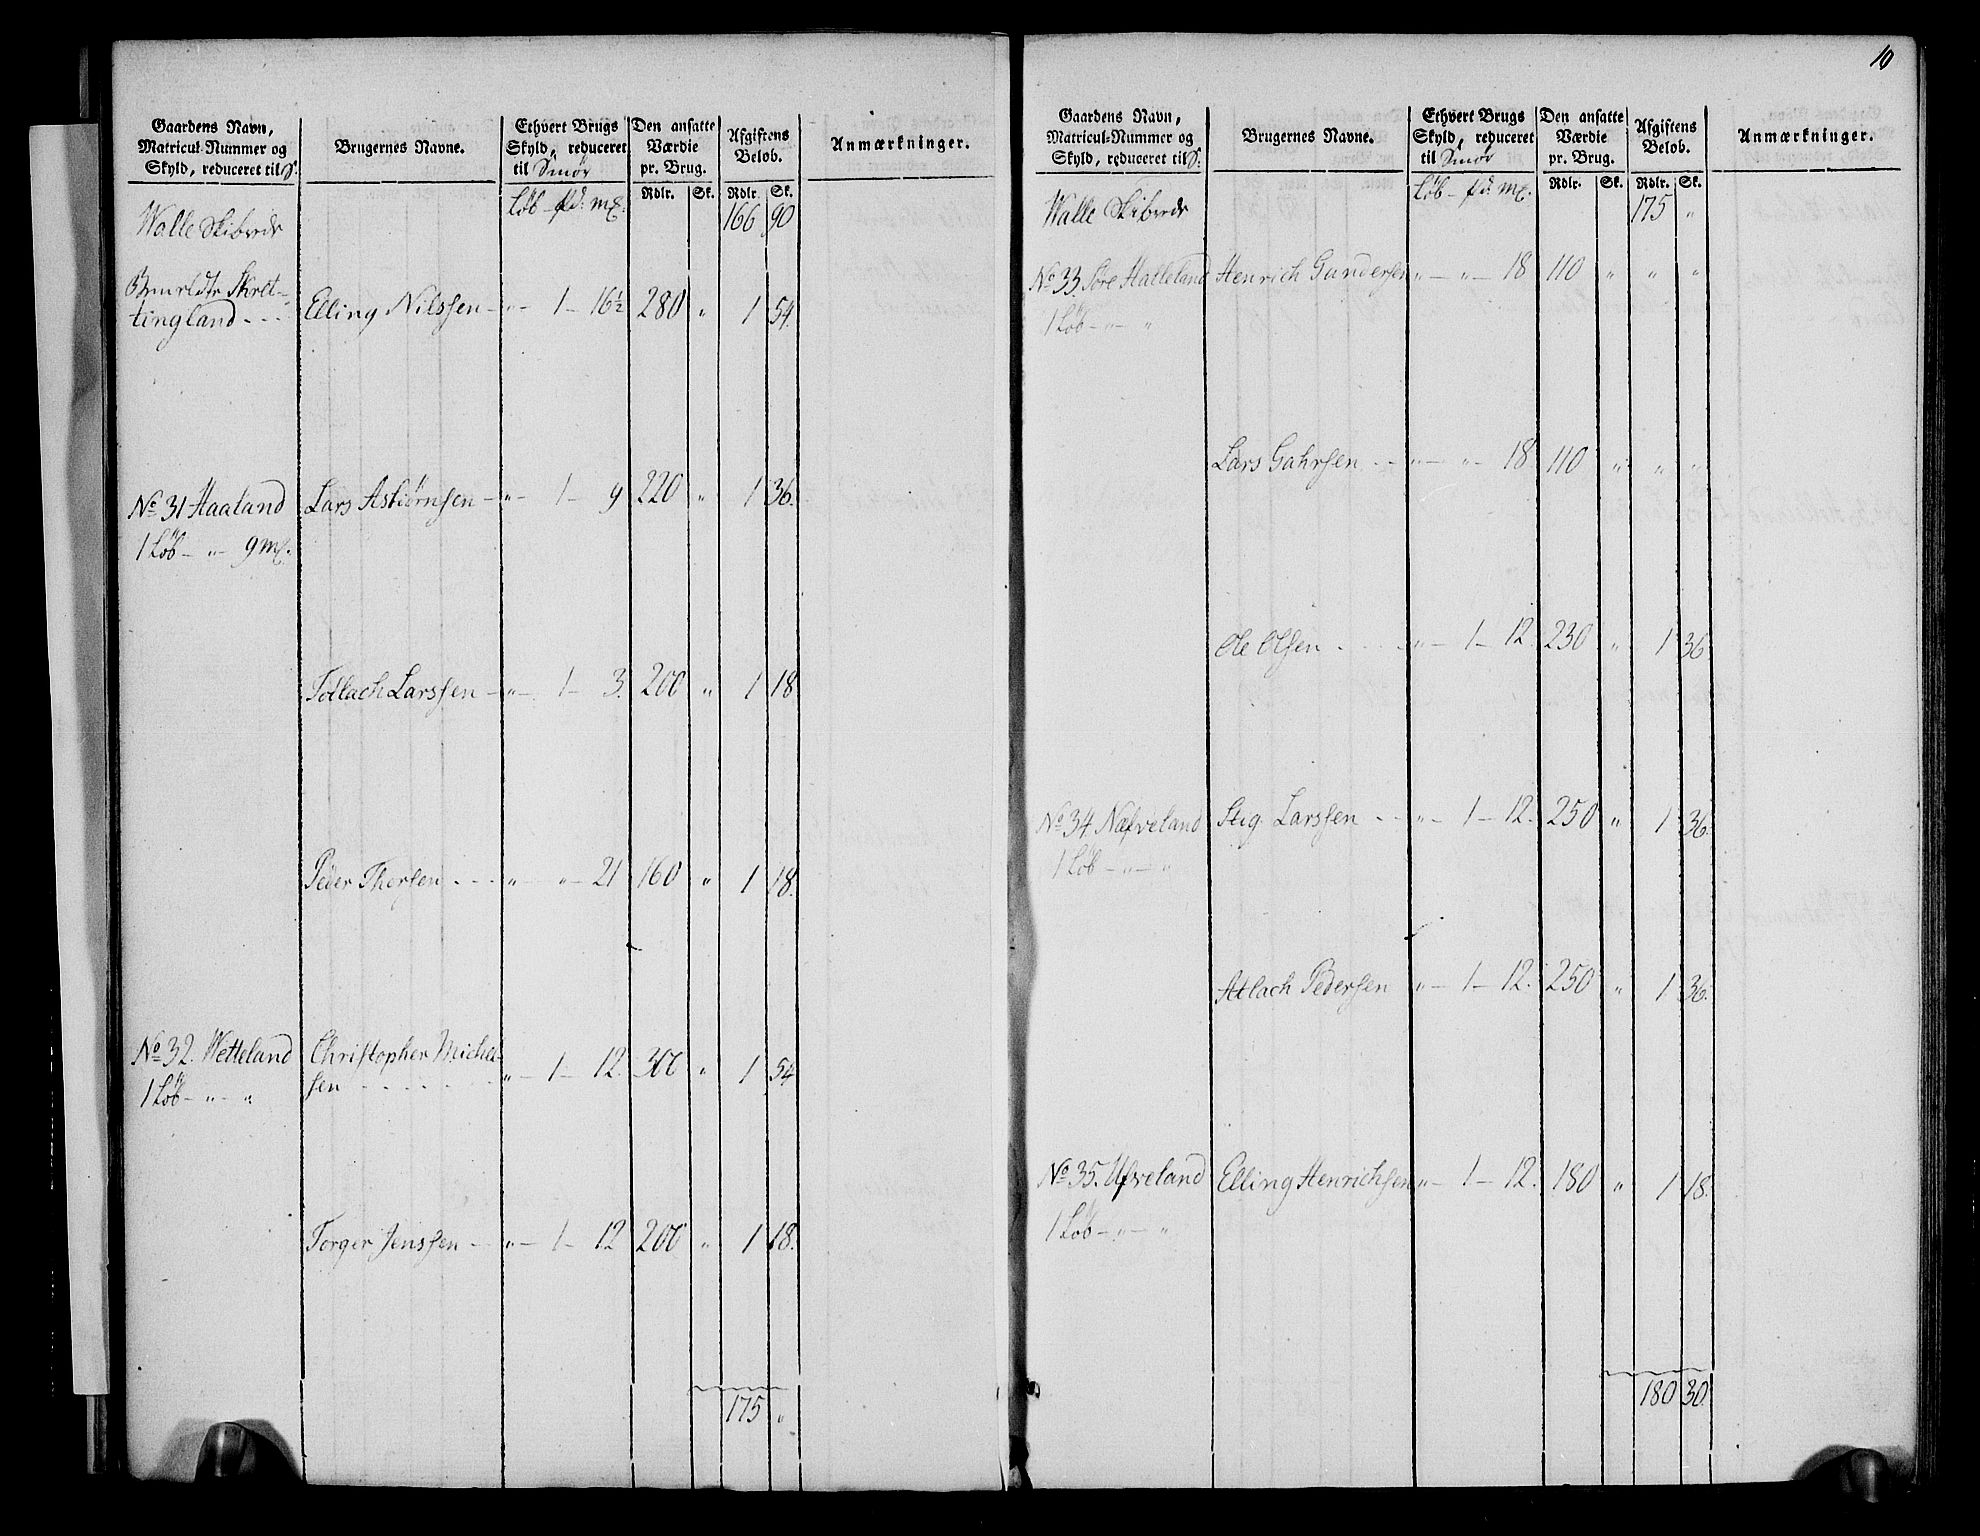 Gaardens Navn,
Matricul-Nummer og
Skyld, reduceret til S.
Brugernes Navne.
Ethvert Brugs
Skyld, reduceret
til Smør
Den ansatte
Værdie
pr. Brug.
Afgiftens
Beløb.
Anmærkninger.
Løb - pd: mk.
Rdlr. Sk. Rdlr. Sk.
Walle Skibrede 166 90
Skret-
tingland - - - Elling Nilssen - " - 1 - 16½ 280 " 1 54.
No 31 Haaland Lars Asbiørnsen - " - 1 - 9 220 " 1 36.
1 Løb - " - 9 mk.
Tollach Larssen - " - 1 - 3. 200 " 1 18
Peder Thorsen - - - " " - 21 160 " 1 18.
No 32. Wetteland Christopher Michel-
1 Løb - " - " sen - - - - - " - 1 - 12. 300 " 1 54
Torger Jenssen - " - 1 - 12 200 " 1 18.
175 "
10
Gaardens Navn,
Matricul-Nummer og
Skyld, reduceret til S.
Brugernes Navne.
Ethvert Brugs
Skyld, reduceret
til Smør
Den ansatte
Værdie
pr. Brug.
Afgiftens
Beløb.
Anmærkninger.
Løb - pd: mk.
Rdlr. Sk. Rdlr. Sk.
Walle Skibrede 175 "
No 33. Søre Halleland Henrich Gundersen " - " - 18 110 " " "
1 Løb - " - "
Lars Gahrsen - - " - " - 18 110 " " "
Ole Olsen - - - - " - 1 - 12. 230 " 1 36
No 34. Næfveland Stig Larssen - - " - 1 - 12. 250 " 1 36.
1 Løb - " - "
Atlach Pedersen " - 1 - 12. 250 " 1 36.
No 35. Ufveland Elling Henrichsen " - 1 - 12. 180 " 1 18.
1 Løb - " - "
180 30